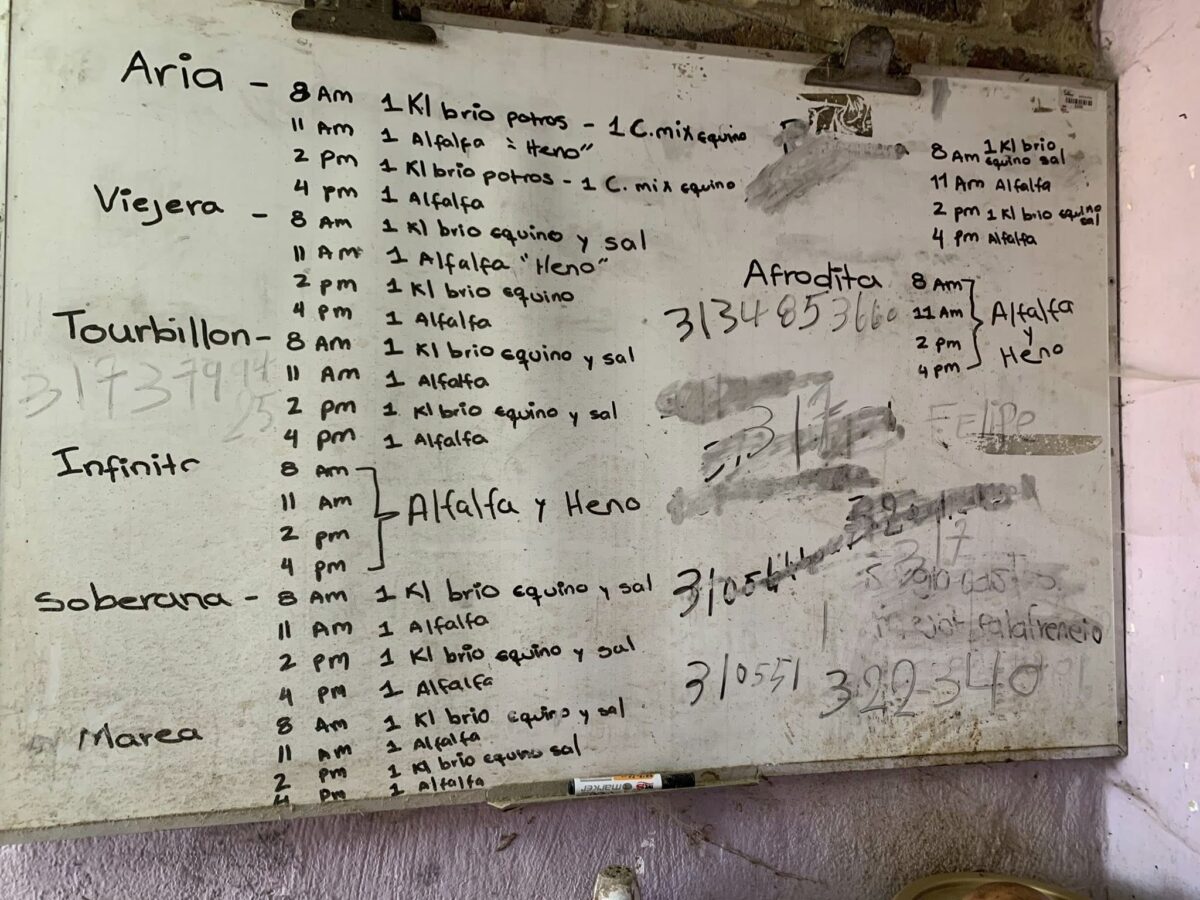 Aria - 8 Am 1 Kl brio potros - 1 C. mix equino
11 Am 1 Alfalfa "Heno"
2 pm 1 Kl brio potros - 1 C. mix equino
4 pm 1 Alfalfa
Viejera - 8 Am 1 Kl brio equino y sal
11 Am 1 Alfalfa "Heno"
2 pm 1 Kl brio equino
4 pm 1 Alfalfa
Tourbillon - 8 Am 1 Kl brio equino y sal
11 Am 1 Alfalfa
2 pm 1 Kl brio equino y sal
4 pm 1 Alfalfa
Infinito 8 Am
11 Am
2 pm
4 pm
Alfalfa y Heno
Soberana - 8 Am 1 Kl brio equino y sal
11 Am 1 Alfalfa
2 pm 1 Kl brio equino y sal
4 pm 1 Alfalfa
Marea 8 Am 1 Kl brio equino y sal
11 Am 1 Alfalfa
2 pm 1 Kl brio equino sal
4 pm 1 Alfalfa
8 Am 1 Kl brio
equino sal
11 Am Alfalfa
2 pm 1 Kl brio equino
sal
4 pm Alfalfa
Afrodita 8 Am
11 Am
2 pm
4 pm
Alfalfa
y
Heno
317
Felipe
317
310551
322340
marker